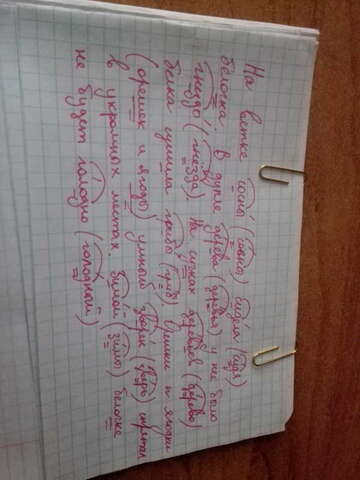 На ветке сосны (сосны) сидела (сидя)
белочка. В дупле дерева (деревья) у неё было
гнездо (гнёзда). На сучках деревьев (дерево)
белка сушила грибы (гриб) орешки и ягодки
(орешек и ягоды) умный зверёк (зверь) спрятал
в укромных местах. Зимой (зимы) белочке
не будет голодно (голодный)